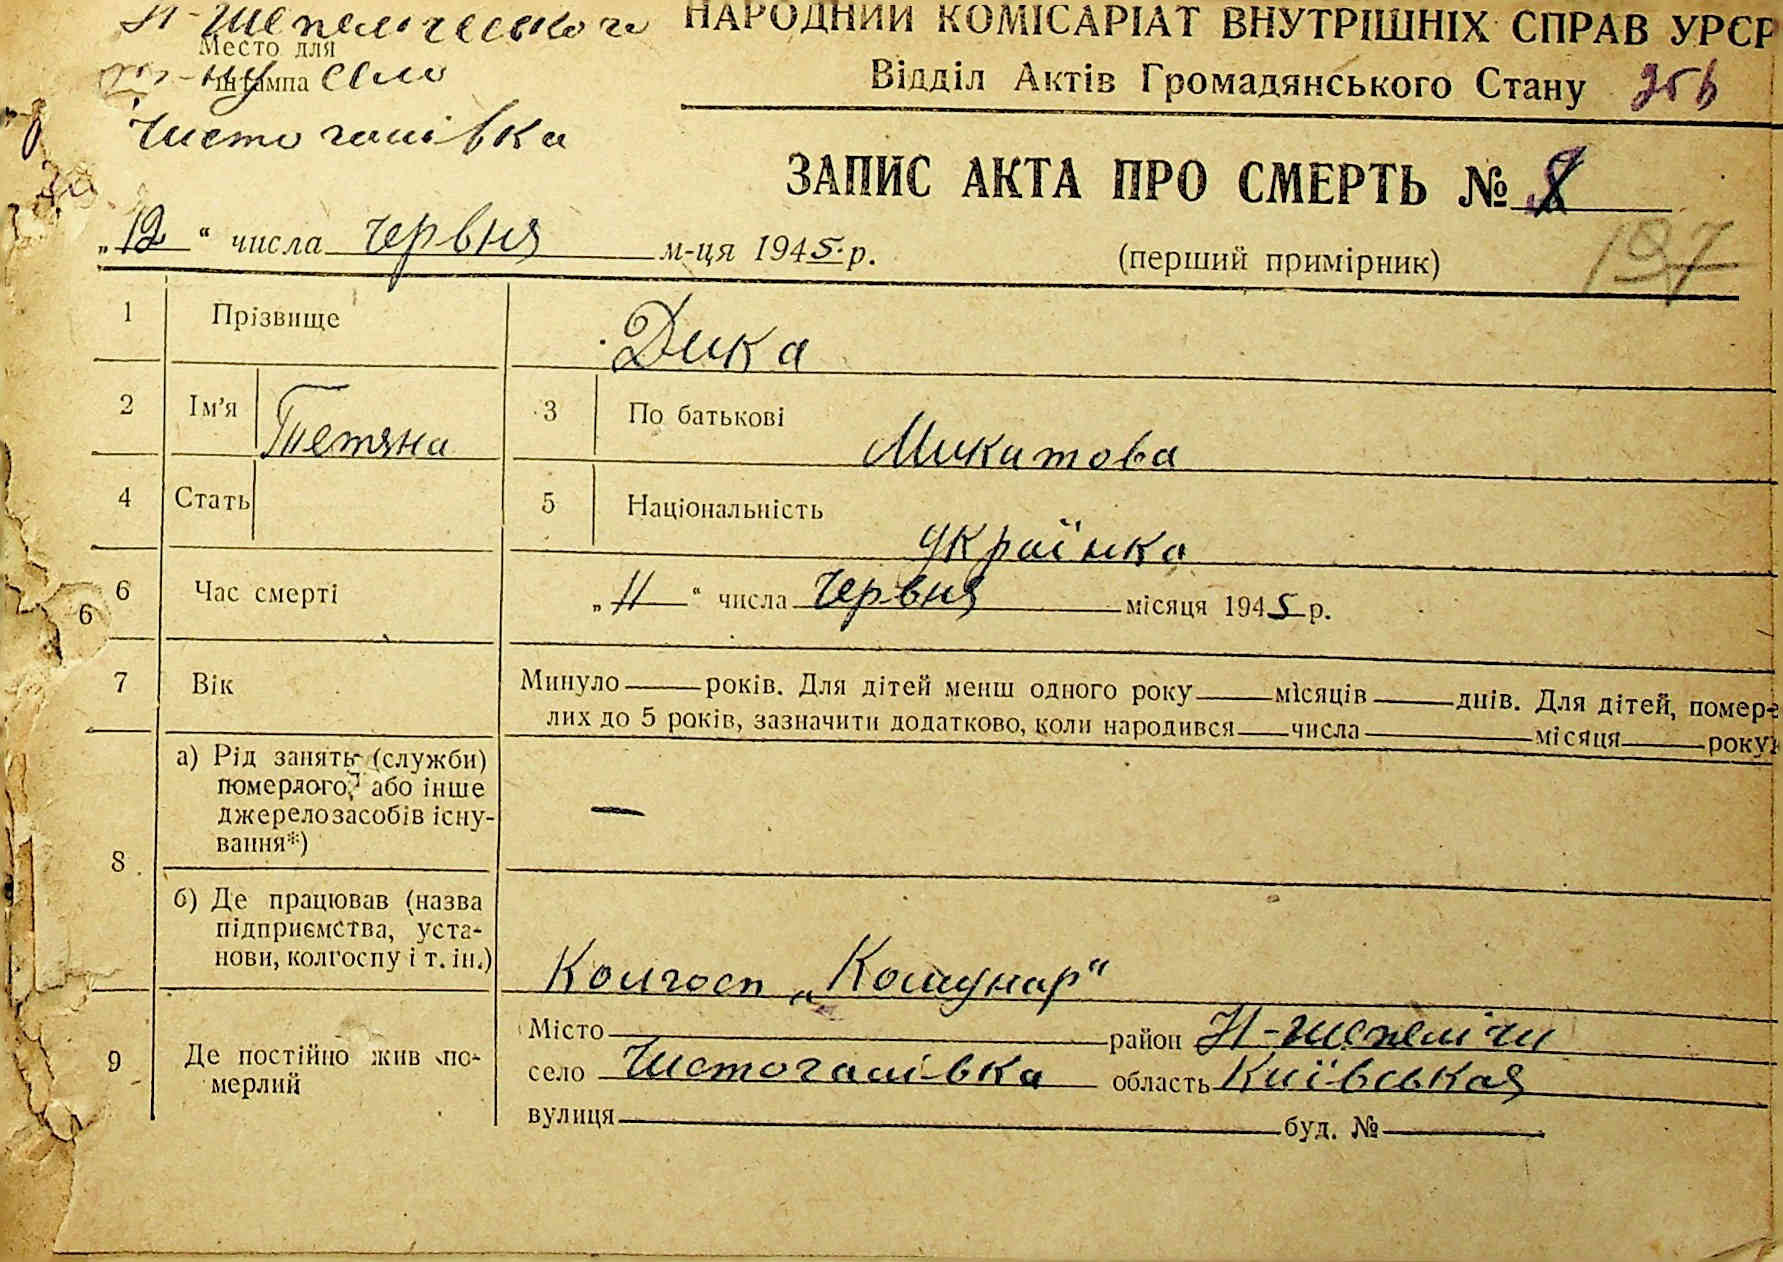 Н-Шепелічського
Место для
штампа
р-ну село
Чистогалівка
НАРОДНИЙ КОМІСАРІАТ ВНУТРІШНІХ СПРАВ УРСР
Відділ Актів Громадянського Стану
ЗАПИС АКТА ПРО СМЕРТЬ № 8
„12“ числа червня м-ця 1945 р.
(перший примірник)
197
1 Прізвище Дика
2 Ім’я Тетяна 3 По батькові Микитова
4 Стать 5 Національність українка
6 Час смерті „11“ числа червня місяця 1945 р.
6
7 Вік Минуло років. Для дітей менш одного року місяців днів. Для дітей, помер-
лих до 5 років, зазначити додатково, коли народився числа місяця року
8 а) Рід занять (служби)
померлого, або інше
джерело засобів існу-
вання*) —
б) Де працював (назва
підприємства, уста-
нови, колгоспу і т. ін.) Колгосп „Комунар“
9 Де постійно жив по-
мерлий
Місто район Н-Шепелічи
село Чистогалівка область Київськая
вулиця буд. №